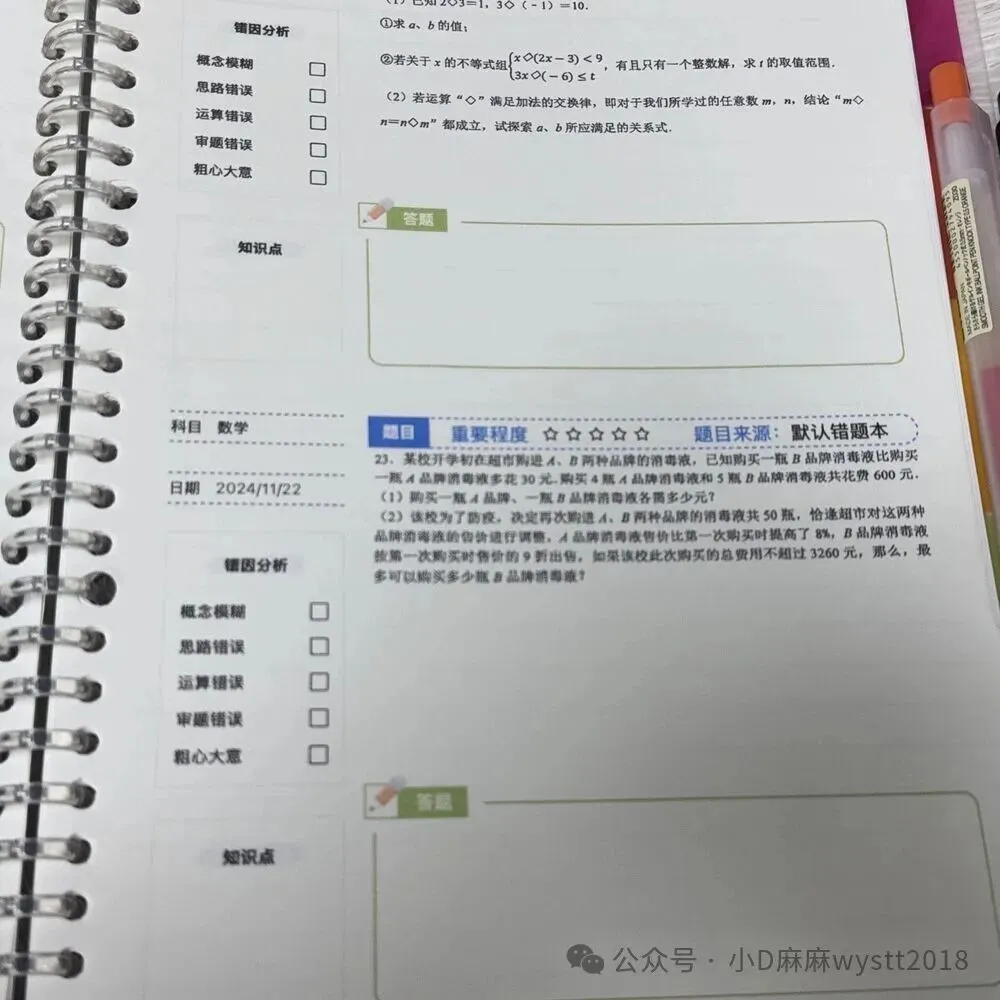 (1) 已知 2◇3=1, 3◇(-1)=10.
①求 a、b 的值;
②若关于 x 的不等式组{x◇(2x-3)<9
3x◇(-6)≤t, 有且只有一个整数解, 求 t 的取值范围.
(2) 若运算“◇”满足加法的交换律, 即对于我们所学过的任意数 m, n, 结论“m◇
n=n◇m”都成立, 试探索 a、b 所应满足的关系式.
错因分析
概念模糊
思路错误
运算错误
审题错误
粗心大意
答题
知识点
科目 数学
日期 2024/11/22
题目 重要程度 ☆☆☆☆☆ 题目来源: 默认错题本
23. 某校开学初在超市购进 A、B 两种品牌的消毒液, 已知购买一瓶 B 品牌消毒液比购买
一瓶 A 品牌消毒液多花 30 元. 购买 4 瓶 A 品牌消毒液和 5 瓶 B 品牌消毒液共花费 600 元.
(1) 购买一瓶 A 品牌、一瓶 B 品牌消毒液各需多少元?
(2) 该校为了防疫, 决定再次购进 A、B 两种品牌的消毒液共 50 瓶, 恰逢超市对这两种
品牌消毒液的售价进行调整, A 品牌消毒液售价比第一次购买时提高了 8%, B 品牌消毒液
按第一次购买时售价的 9 折出售, 如果该校此次购买的总费用不超过 3260 元, 那么, 最
多可以购买多少瓶 B 品牌消毒液?
错因分析
概念模糊
思路错误
运算错误
审题错误
粗心大意
答题
知识点
公众号 · 小D麻麻wystt2018